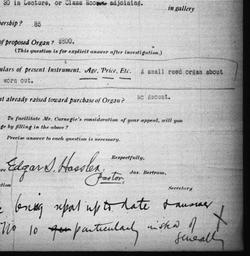 30 in Lecture, or Class Rooms adjoining.
in gallery
bership? 85
of proposed Organ? $500.
(This question is for explicit answer after investigation.)
ulars of present Instrument. Age, Price, Etc. A small reed organ about
worn out.
t already raised toward purchase of Organ? No Accont.
To facilitate Mr. Carnegie's consideration of your appeal, will you
ge by filling in the above?
Precise answer to each question is necessary.
Respectfully,
Edgar S. Jas. Bertram,
Pastor, Secretary
ition
being up to date & answer
No 10 particularly